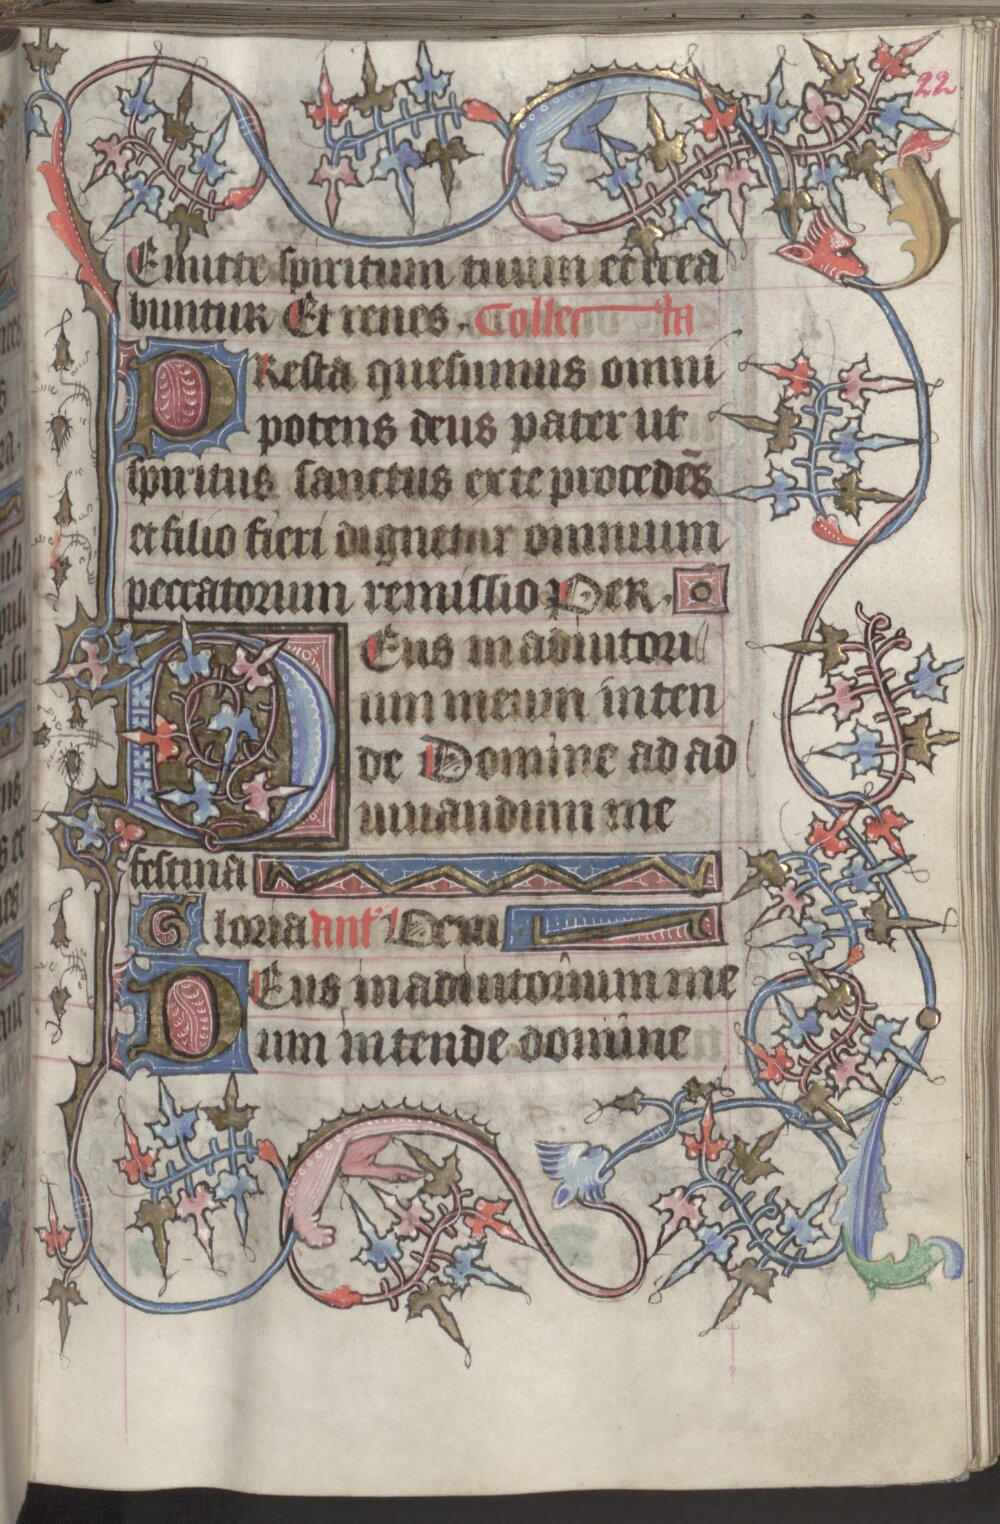 22
Emitte spiritum tuum et crea
buntur Et renes. Collecta
PResta quesumus omni
potens deus pater ut
spiritus sanctus ex te procedēs
et filio fieri dignetur omnium
peccatorum remissio Per.
DEus in adiutori
um meum inten
de Domine ad ad
iuuandum me
festina
Gloria ant' Veni
DEus in adiutorium me
um intende domine